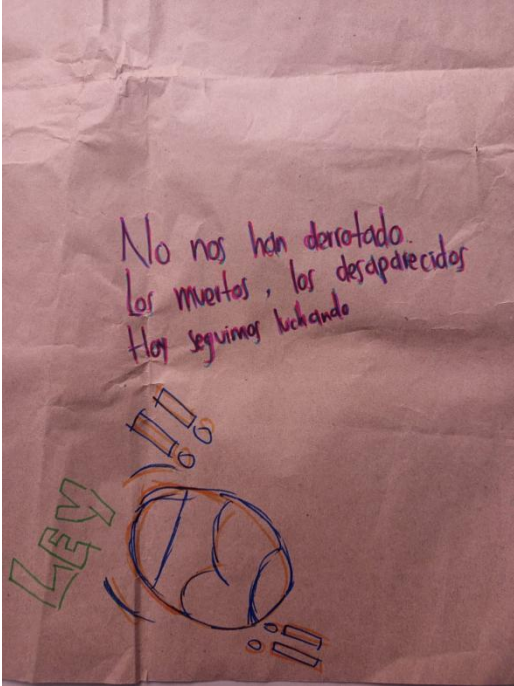 No nos han derrotado.
Los muertos, los desaparecidos
Hoy seguimos luchando
!!
LEY
!!